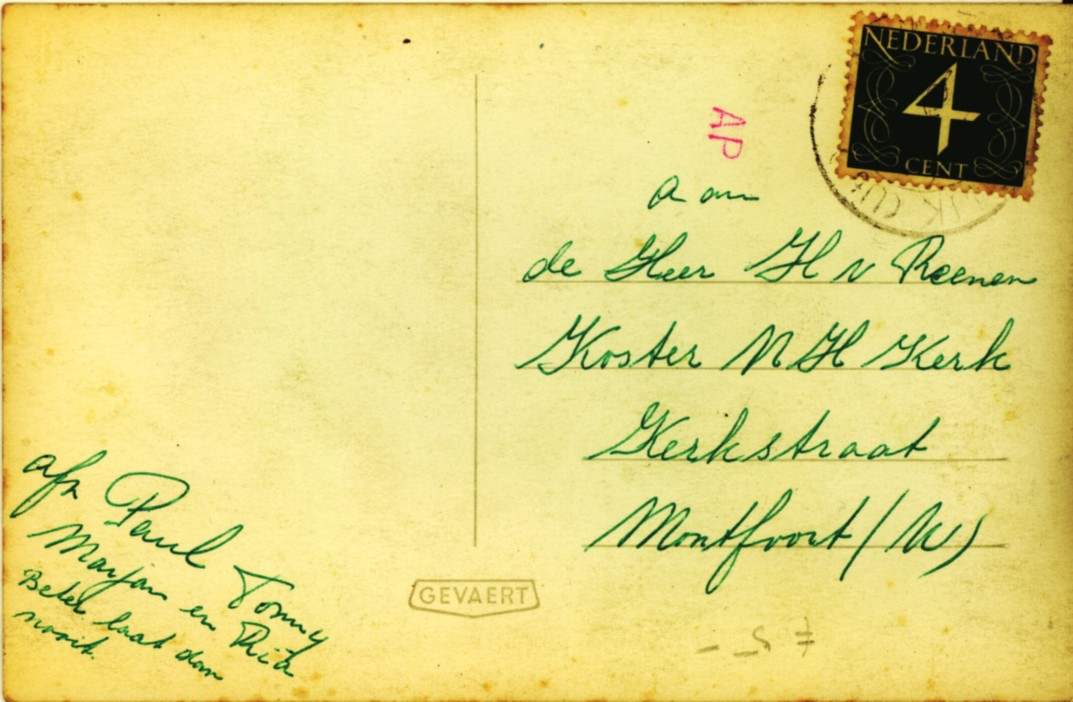 NEDERLAND
4
CENT
AP
Aan
de Heer H v Reenen
Koster NH Kerk
Kerkstraat
Montfoort (U)
afz Paul Tonny
Marjan en Ria
Beter laat dan
nooit.
GEVAERT